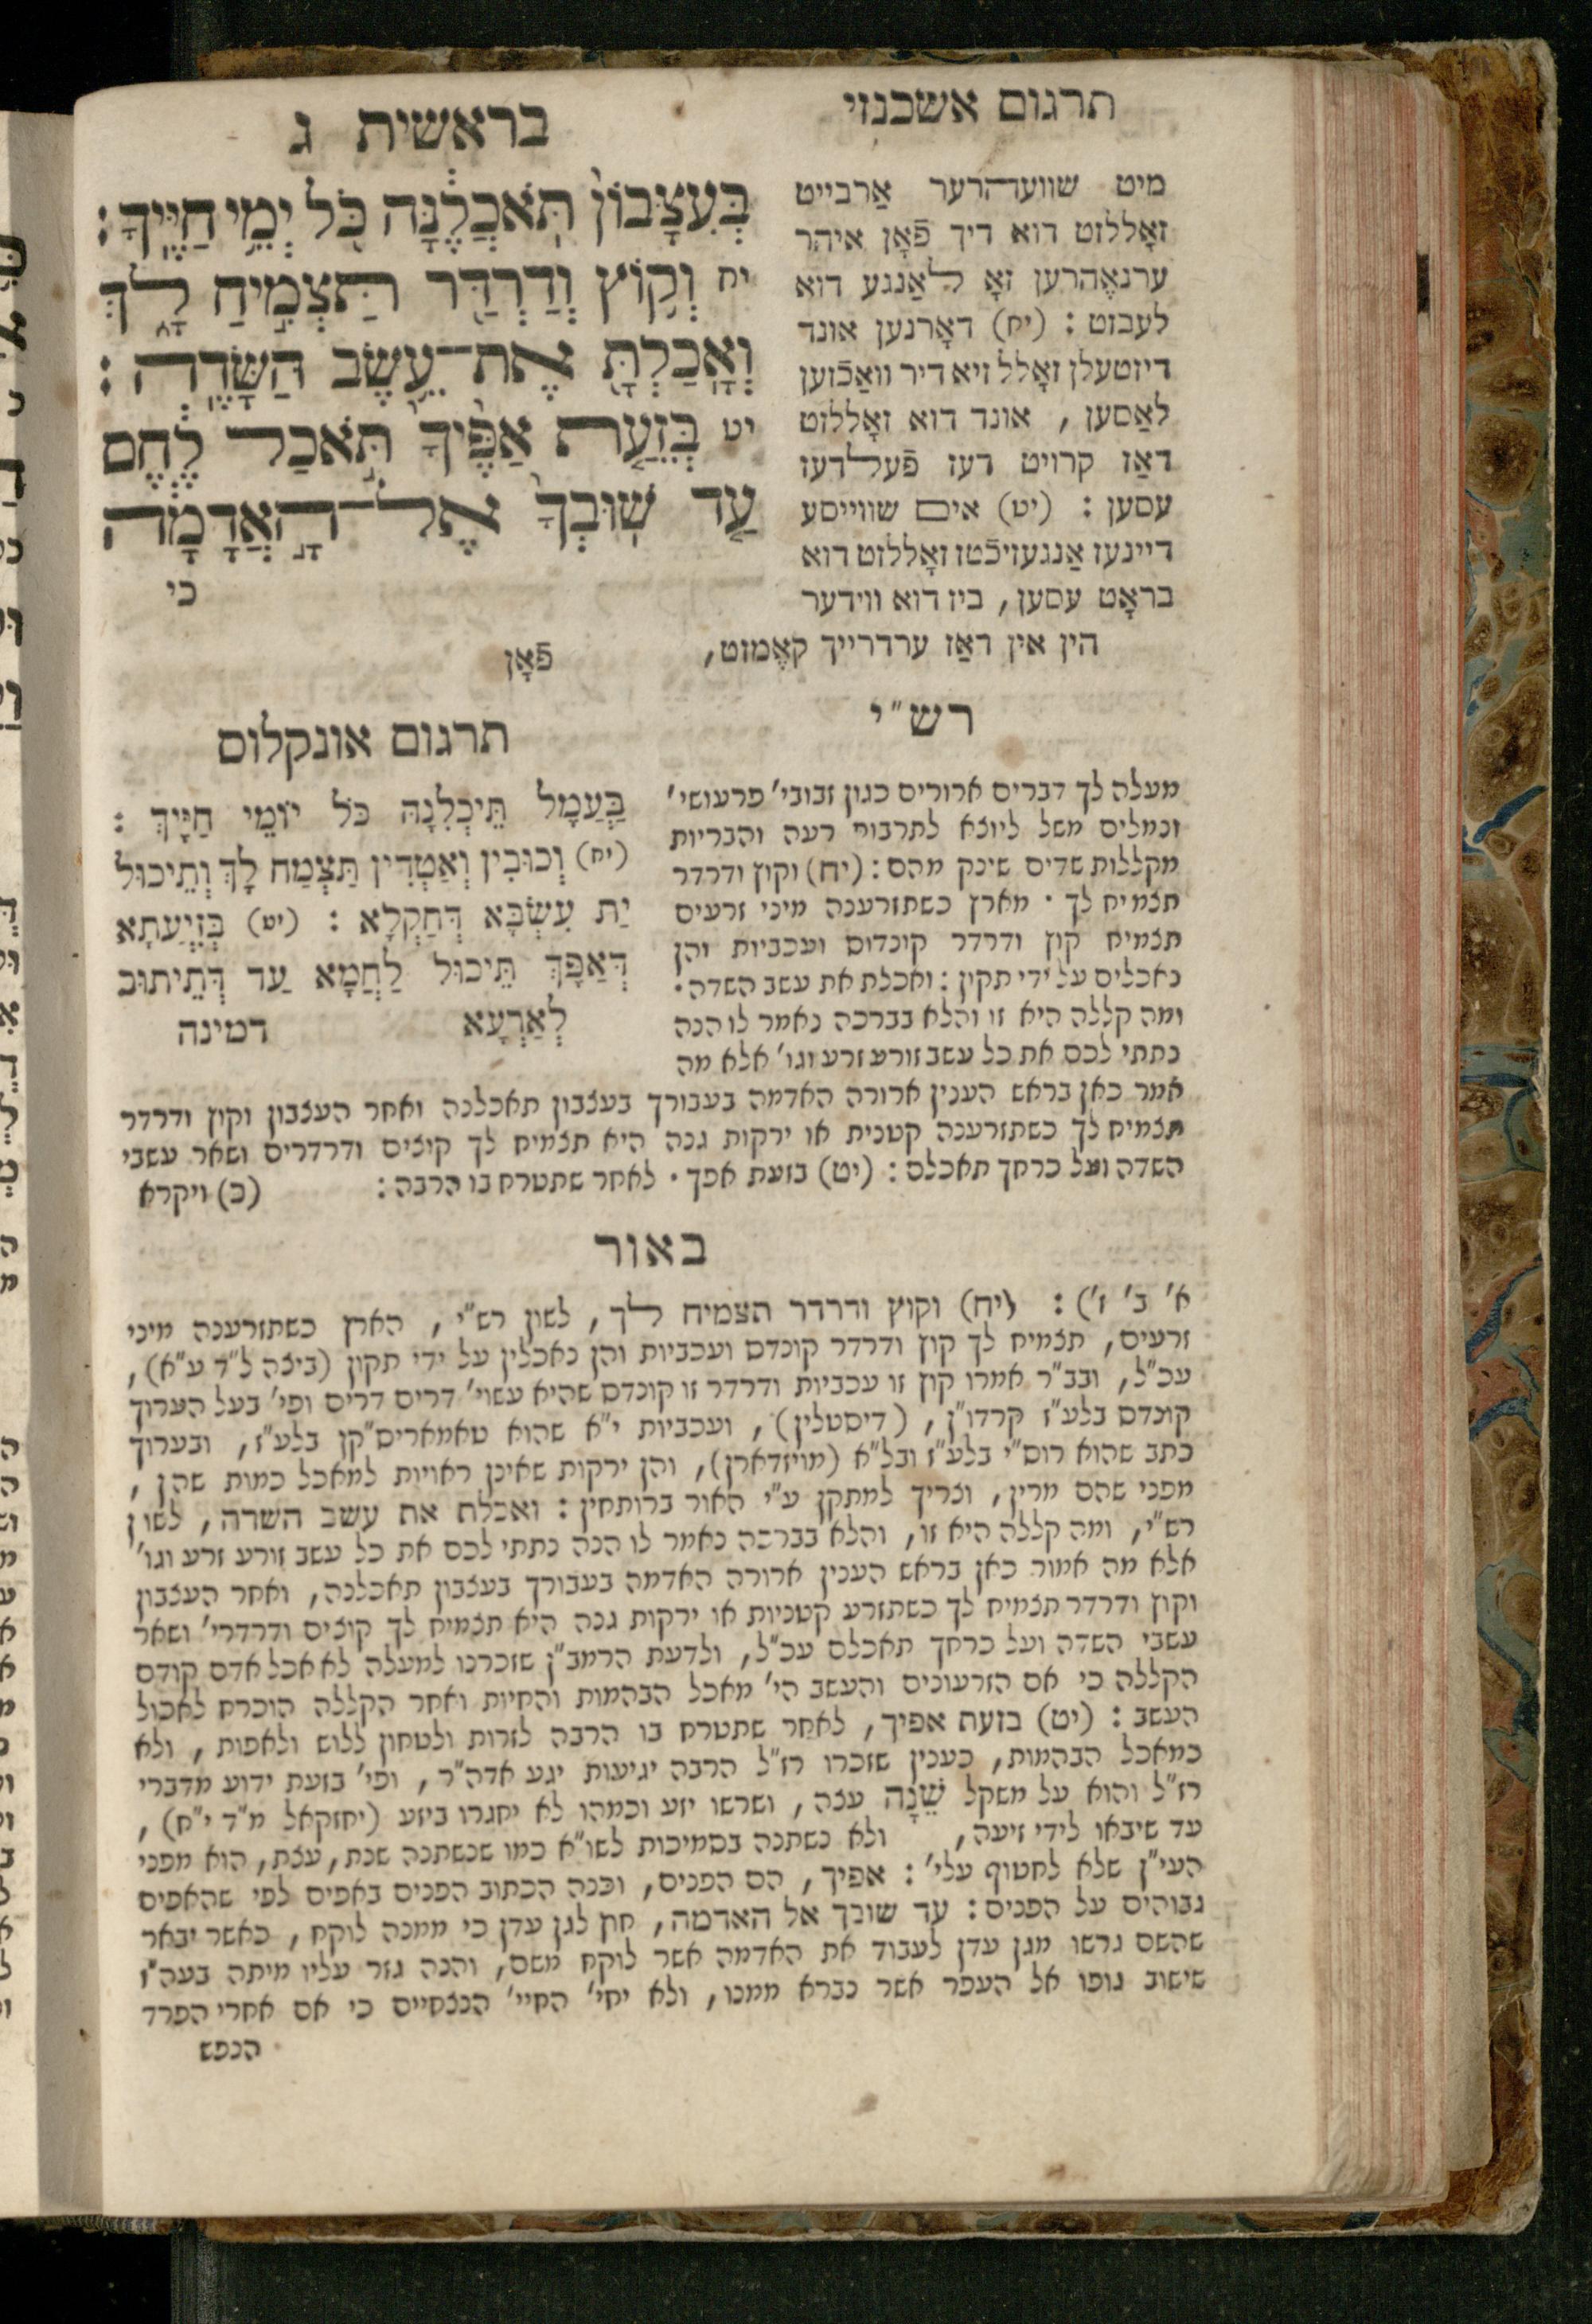 תרגום אשכנזי
בראשית ג
מיט שווערהרער אַרבייט
זאָללזט דוא דיך פֿאָן איהר
ערנאֶהרען זאָ לאַנגע דוא
לעבזט : (יח) דאָרנען אונד
דיזטעלן זאָלל זיא דיר וואַכֿזען
לאַסען , אונד דוא זאָללזט
דאַז קרויט דעז פֿעלדעז
עסען : (יט) אים שווייסע
דיינעז אַנגעזיכֿטז זאָללזט דוא
בראָט עסען, ביז דוא ווידער
הין אין דאַז ערדרייך קאָמזט,
פֿאָן
בְּעִצָּבוֹן֙ תֹּֽאכֲלֶ֔נָּה כֹּ֖ל יְמֵ֥י חַיֶּֽיךָ׃
יח וְק֥וֹץ וְדַרְדַּ֖ר תַּצְמִ֣יחַֽ לָ֑ךְ
וְאָכַלְתָּ֖ אֶת־עֵ֥שֶׂב הַשָּׂדֶֽה׃
יט בְּזֵעַ֤ת אַפֶּ֙יךָ֙ תֹּ֣אכַל לֶ֔חֶם
עַ֤ד שֽׁוּבְךָ֙ אֶל־הָ֣אֲדָמָ֔ה
כי
רש״י
מעלה לך דברים ארורים כגון זבובי׳ פרעושי׳
ונמלים משל ליוצא לתרבות רעה והבריות
מקללות שדים שינק מהם : (יח) וקוץ ודרדר
תצמיח לך · מארץ כשתזרענה מיני זרעים
תצמיח קוץ ודרדר קונדוס ועכביות והן
נאכלים על ידי תקון : ואכלת את עשב השדה·
ומה קללה היא זו והלא בברכה נאמר לו הנה
נתתי לכם את כל עשב זורע זרע וגו׳ אלא מה
אמר כאן בראש הענין ארורה האדמה בעבורך בעצבון תאכלנה ואחר העצבון וקוץ ודרדר
תצמיח לך כשתזרענה קטנית או ירקות גנה היא תצמיח לך קוצים ודרדרים ושאר עשבי
השדה ועל כרחך תאכלם : (יט) בזעת אפך · לאחר שתטרח בו הרבה : (כ) ויקרא
תרגום אונקלוס
בַּעֲמָל תֵּיכְלִנָּהּ כֹּל יוֹמֵי חַיָּיךְ :
(יח) וְכוּבִין וְאַטְדִין תַּצְמַח לָךְ וְתֵיכוּל
יַת עִשְׂבָּא דְּחַקְלָא : (יט) בְּזֵיעֲתָא
דְּאַפָּךְ תֵּיכוּל לַחֲמָא עַד דְּתֵיתוּב
לְאַרְעָא דמינה
באור
א׳ ב׳ ז׳) : (יח) וקוץ ודרדר תצמיח לך , לשון רש״י , הארץ כשתזרענה מיני
זרעים, תצמיח לך קוץ ודרדר קונדס ועכביות והן נאכלין על ידי תקון (ביצה ל״ד ע״א),
עכ״ל, ובב״ר אמרו קוץ זו עכביות ודרדר זו קונדס שהיא עשוי׳ דרים דרים ופי׳ בעל הערוך
קונדס בלע״ז קרדו״ן, (דיסטלין) , ועכביות י״א שהוא טאמאריס״קן בלע״ז, ובערוך
כתב שהוא רוס״י בלע״ז ובל״א (מויזדארן), והן ירקות שאינן ראויות למאכל כמות שהן ,
מפני שהם מרין, וצריך למתקן ע״י האור ברותחין : ואכלת את עשב השדה, לשון
רש״י, ומה קללה היא זו, והלא בברכה נאמר לו הנה נתתי לכם את כל עשב זורע זרע וגו׳
אלא מה אמור כאן בראש הענין ארורה האדמה בעבורך בעצבון תאכלנה, ואחר העצבון
וקוץ ודרדר תצמיח לך כשתזרע קטניות או ירקות גנה היא תצמיח לך קוצים ודרדרי׳ ושאר
עשבי השדה ועל כרחך תאכלם עכ״ל, ולדעת הרמב״ן שזכרנו למעלה לא אכל אדם קודם
הקללה כי אם הזרעונים והעשב הי׳ מאכל הבהמות והחיות ואחר הקללה הוכרח לאכול
העשב : (יט) בזעת אפיך, לאחר שתטרח בו הרבה לזרות ולטחון ללוש ולאפות, ולא
כמאכל הבהמות, כענין שזכרו רז״ל הרבה יגיעות יגע אדה״ר, ופי׳ בזעת ידוע מדברי
רז״ל והוא על משקל שֵׁנָה עצה, ושרשו יזע וכמהו לא יחגרו ביזע (יחזקאל מ״ד י״ח) ,
עד שיבאו לידי זיעה, ולא נשתנה בסמיכות לשו״א כמו שנשתנה שנת, עצת, הוא מפני
העי״ן שלא לחטוף עלי׳ : אפיך, הם הפנים, וכנה הכתוב הפנים באפים לפי שהאפים
גבוהים על הפנים : עד שובך אל האדמה, חוץ לגן עדן כי ממנה לוקח, כאשר יבאר
שהשם גרשו מגן עדן לעבוד את האדמה אשר לוקח משם, והנה גזר עליו מיתה בעה״ז
שישוב גופו אל העפר אשר נברא ממנו, ולא יחי׳ החיי׳ הנצחיים כי אם אחרי הפרד
הנפש